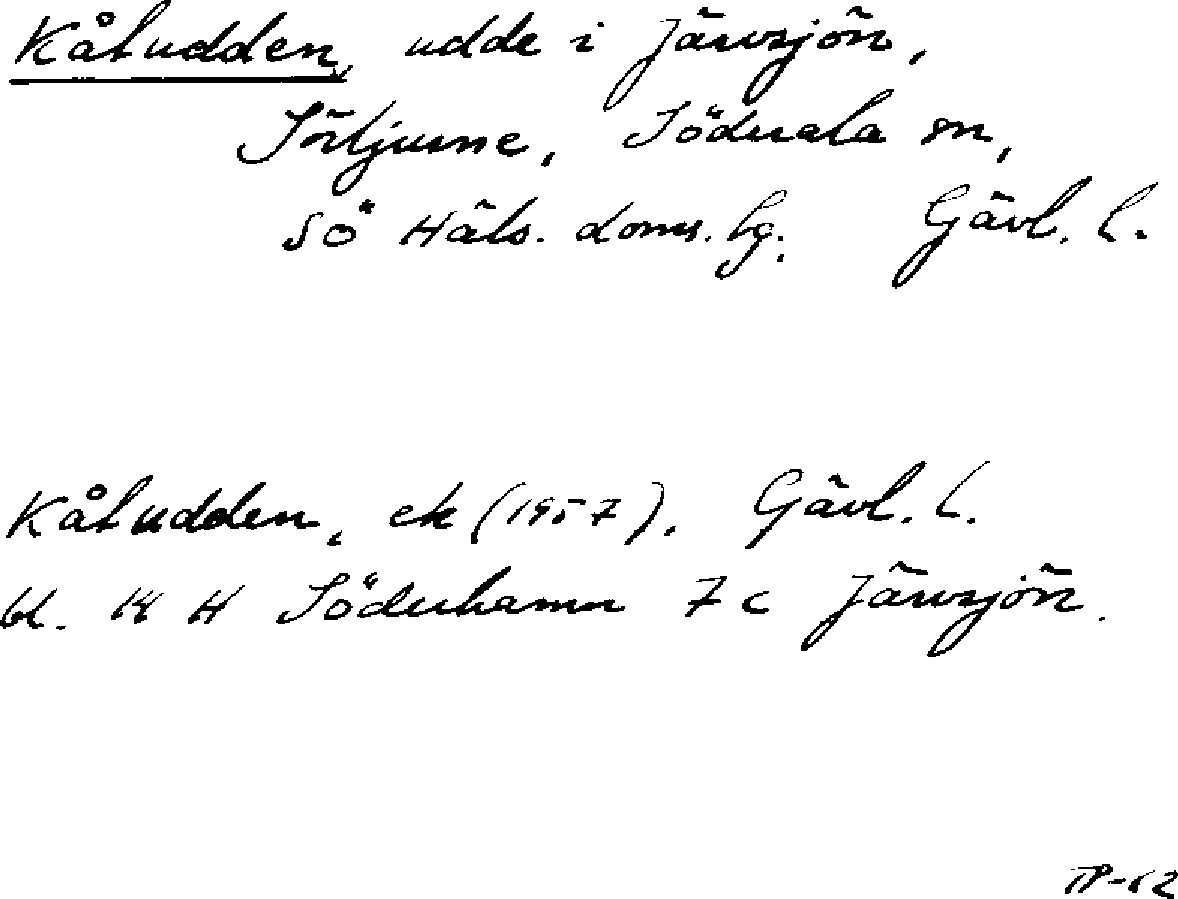 Kåtudden, udde i Järvsjön,
Sörljusne, Söderala sn,
Sö Häls. doms. hg. Gävl. l.
Kåtudden, ek (1957). Gävl. l.
bl. 14 H Söderhamn 7 c Järvsjön.
TP-62